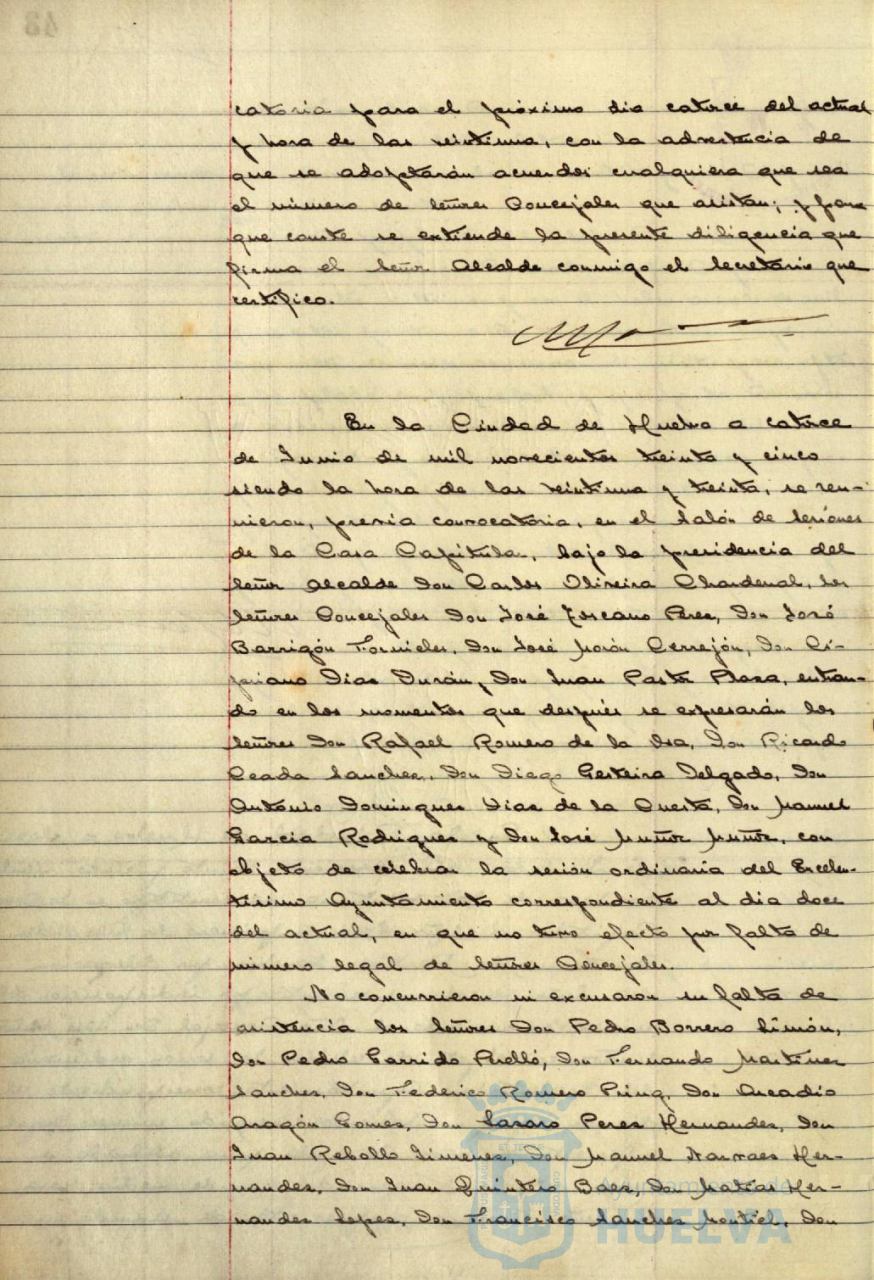 catoria para el próximo dia catorce del actual
y hora de las veintiuna, con la advertencia de
que se adoptarán acuerdos cualquiera que sea
el número de señores Concejales que asistan; y para
que conste se extiende la presente diligencia que
firma el señor Alcalde conmigo el Secretario que
certifico.
En la Ciudad de Huelva a catorce
de Junio de mil novecientos treinta y cinco
siendo la hora de las veintiuna y treinta, se reu-
nieron, previa convocatoria, en el Salón de Sesiones
de la Casa Capitula, bajo la presidencia del
señor Alcalde Don Carlos Oliveira Chardenal, los
señores Concejales Don José Toscano Peres, Don José
Barrigón Fornieles, Don José Morón Cerrejón, Don Ci-
priano Dias Durán, Don Juan Pastor Plasa, entran-
do en los momentos que después se expresarán los
señores Don Rafael Romero de la Osa, Don Ricardo
Ceada Sanches, Don Diego Gesteira Delgado, Don
António Domingues Dias de la Cuesta, Don Manuel
Garcia Rodrigues y Don José Muñoz Muñoz, con
objeto de celebrar la sesión ordinaria del Excelen-
tísimo Ayuntamiento correspondiente al dia doce
del actual, en que no tuvo efecto por falta de
número legal de señores Concejales.
No concurrieron ni excusaron su falta de
asistencia los señores Don Pedro Borrero Limón,
Don Pedro Garrido Perelló, Don Fernando Martines
Sanches, Don Federico Romero Don Arcadio
Aragón Gomes, Don Lasaro Peres Hernandes, Don
Juan Rebollo Jimenes, Don Manuel Narvaes Her-
nandes, Don Juan Quintero Baes, Don Matías Her-
nandes Lopes, Don Francisco Sanches Montiel, Don
Ayuntamiento de
HUELVA
43